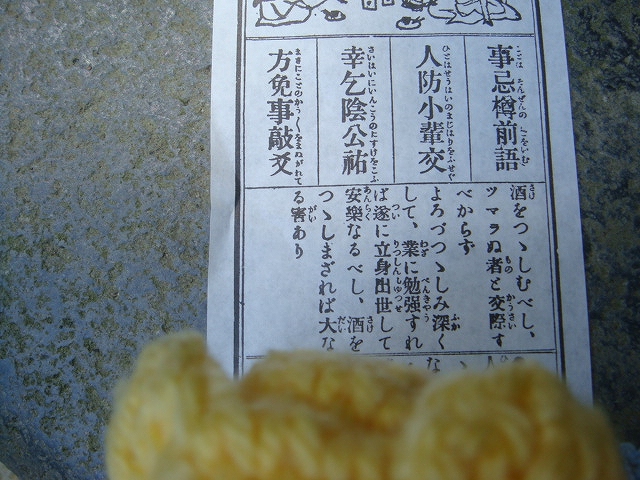 事忌樽前語
人防小輩交
幸乞陰公祐
方免事敲爻
酒をつゝしむべし、
ツマラぬ者と交際す
べからず
よろづつゝしみ深く
して、業に勉强すれ
ば遂に立身出世して
安樂なるべし、酒を
つゝしまざれば大な
る害あり